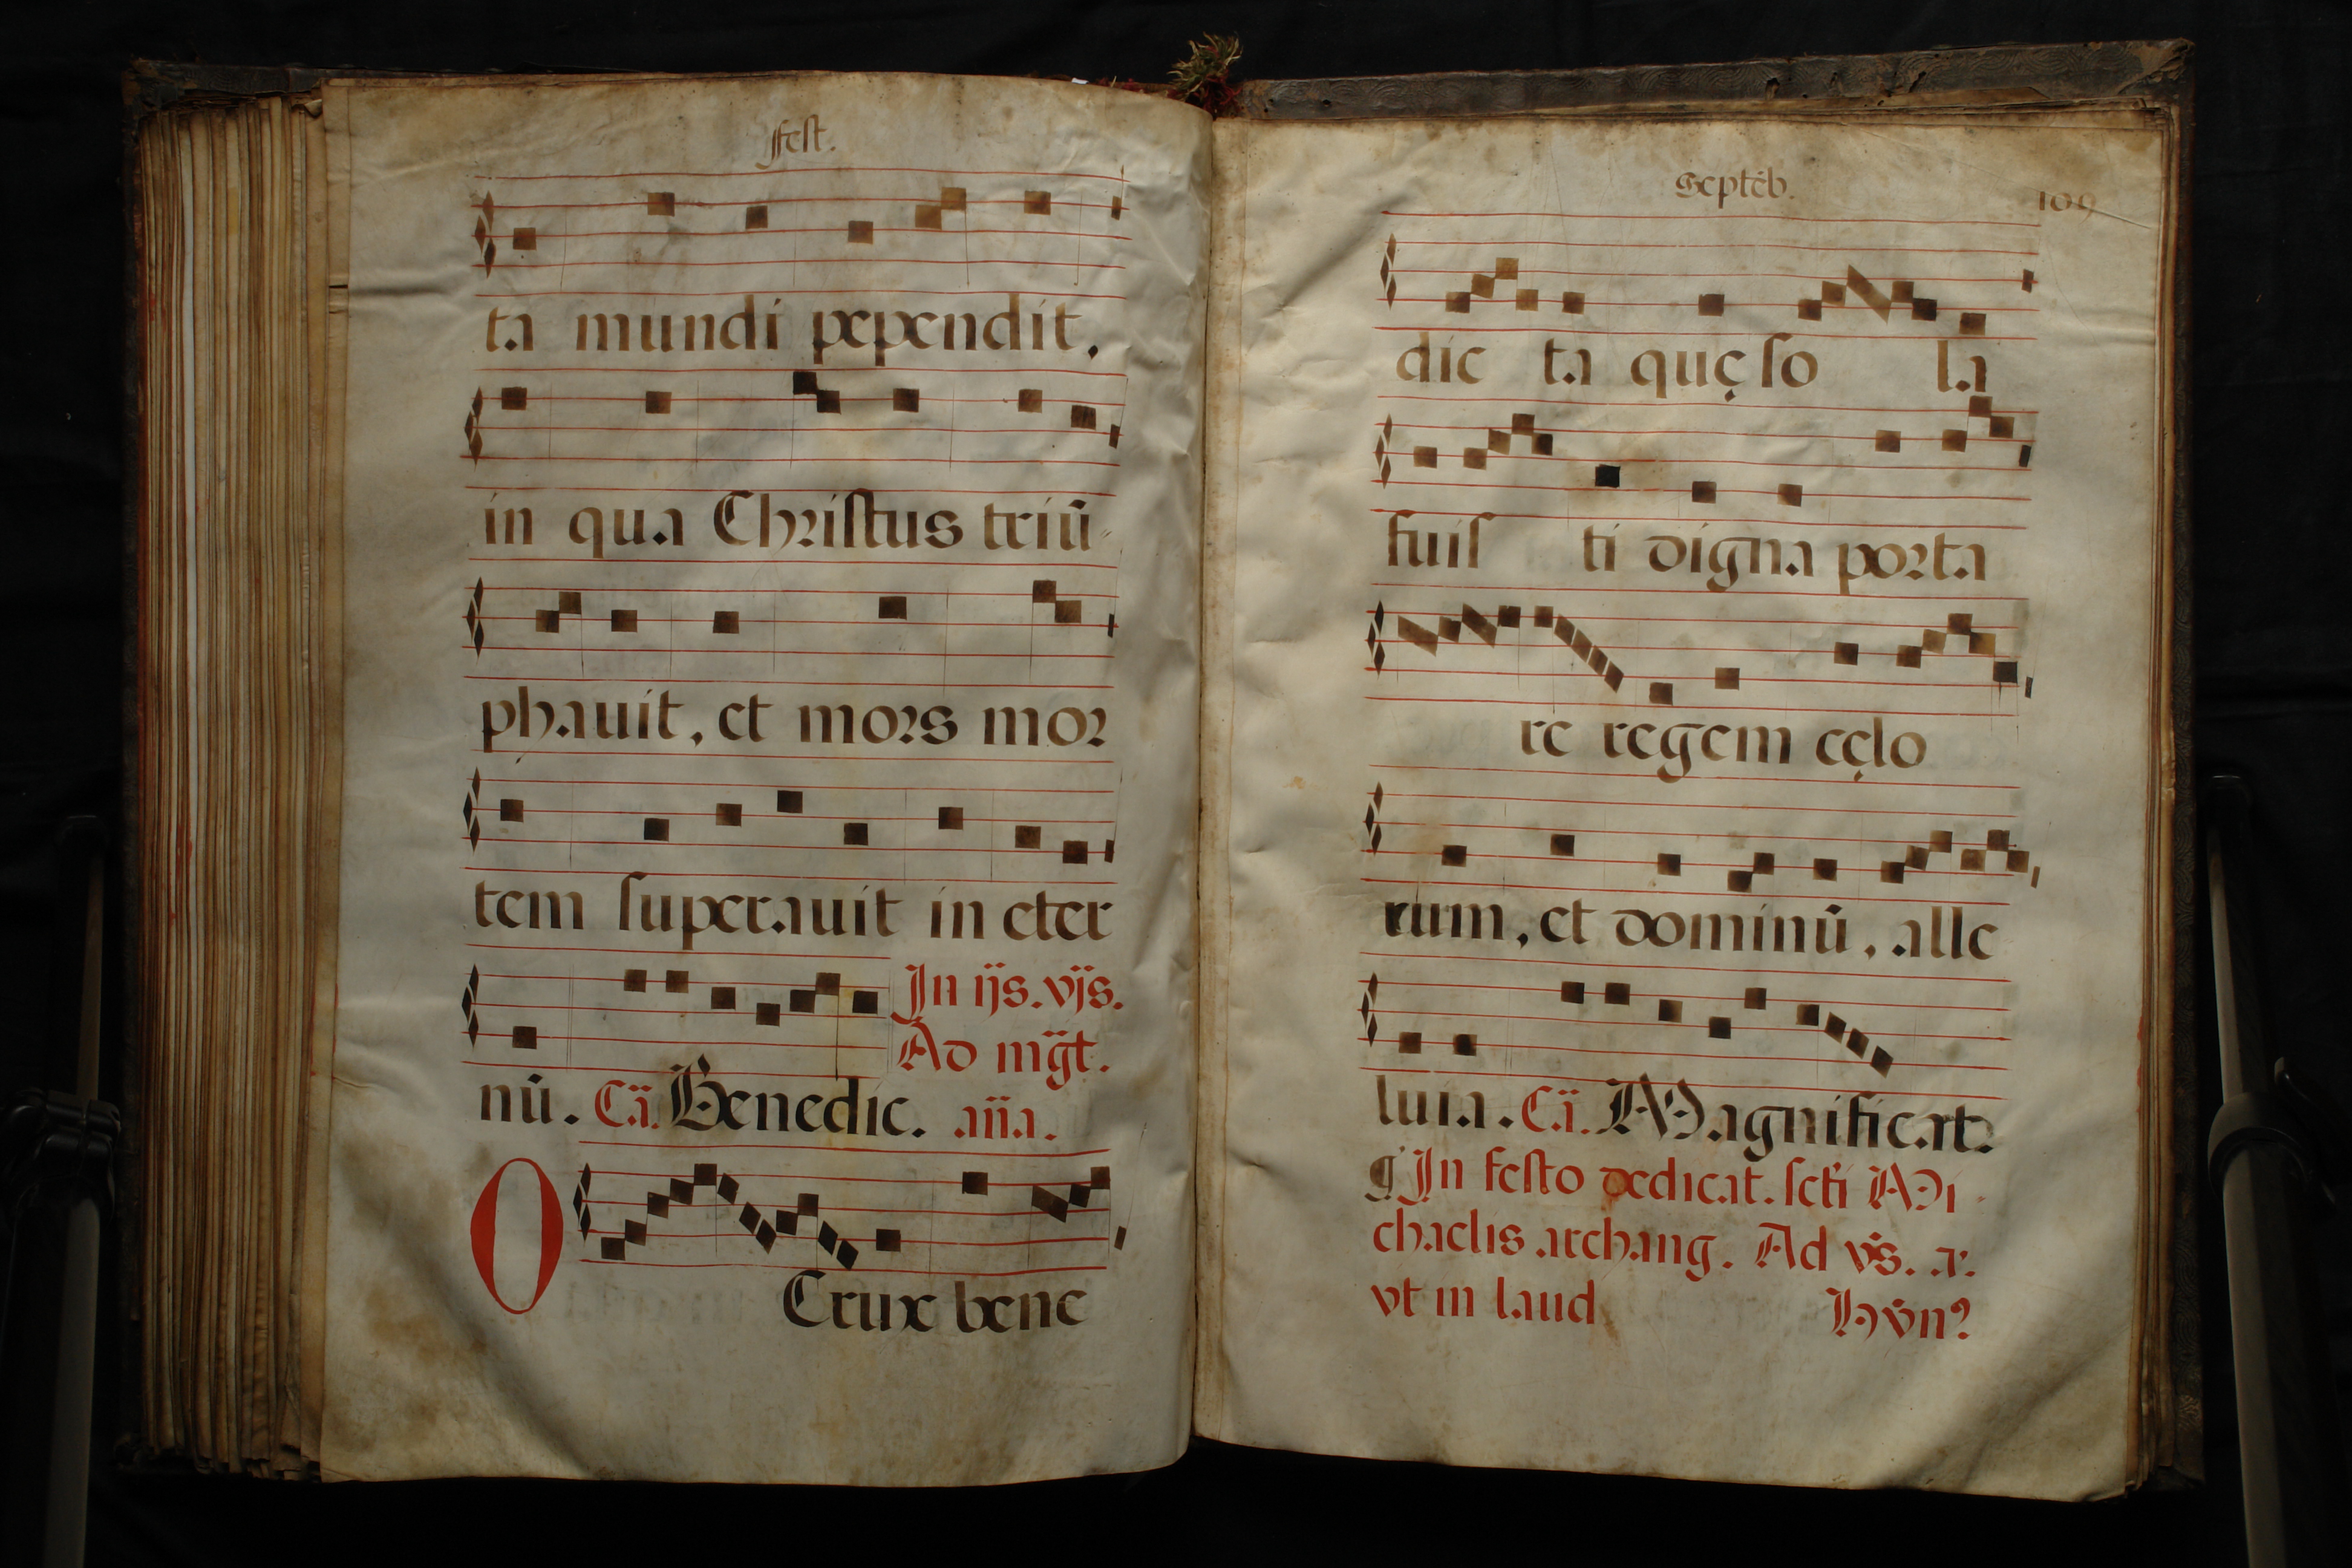 fest.
ta mundi pependit,
in qua Christus triū-
phauit, et mors mor
tem superauit in eter
In ijs. vjs.
Ad mg̃t.
nū. Cã. Benedic. aña.
O Crux bene
Septēb. 109
dic ta quę so la
fuis ti digna porta
re regem cęlo
rum, et dominū, alle
luia. Cã. Magnificat.
¶ In festo dedicat. scti Mi-
chaelis archang. Ad vs. a.
vt in laud Hvn?